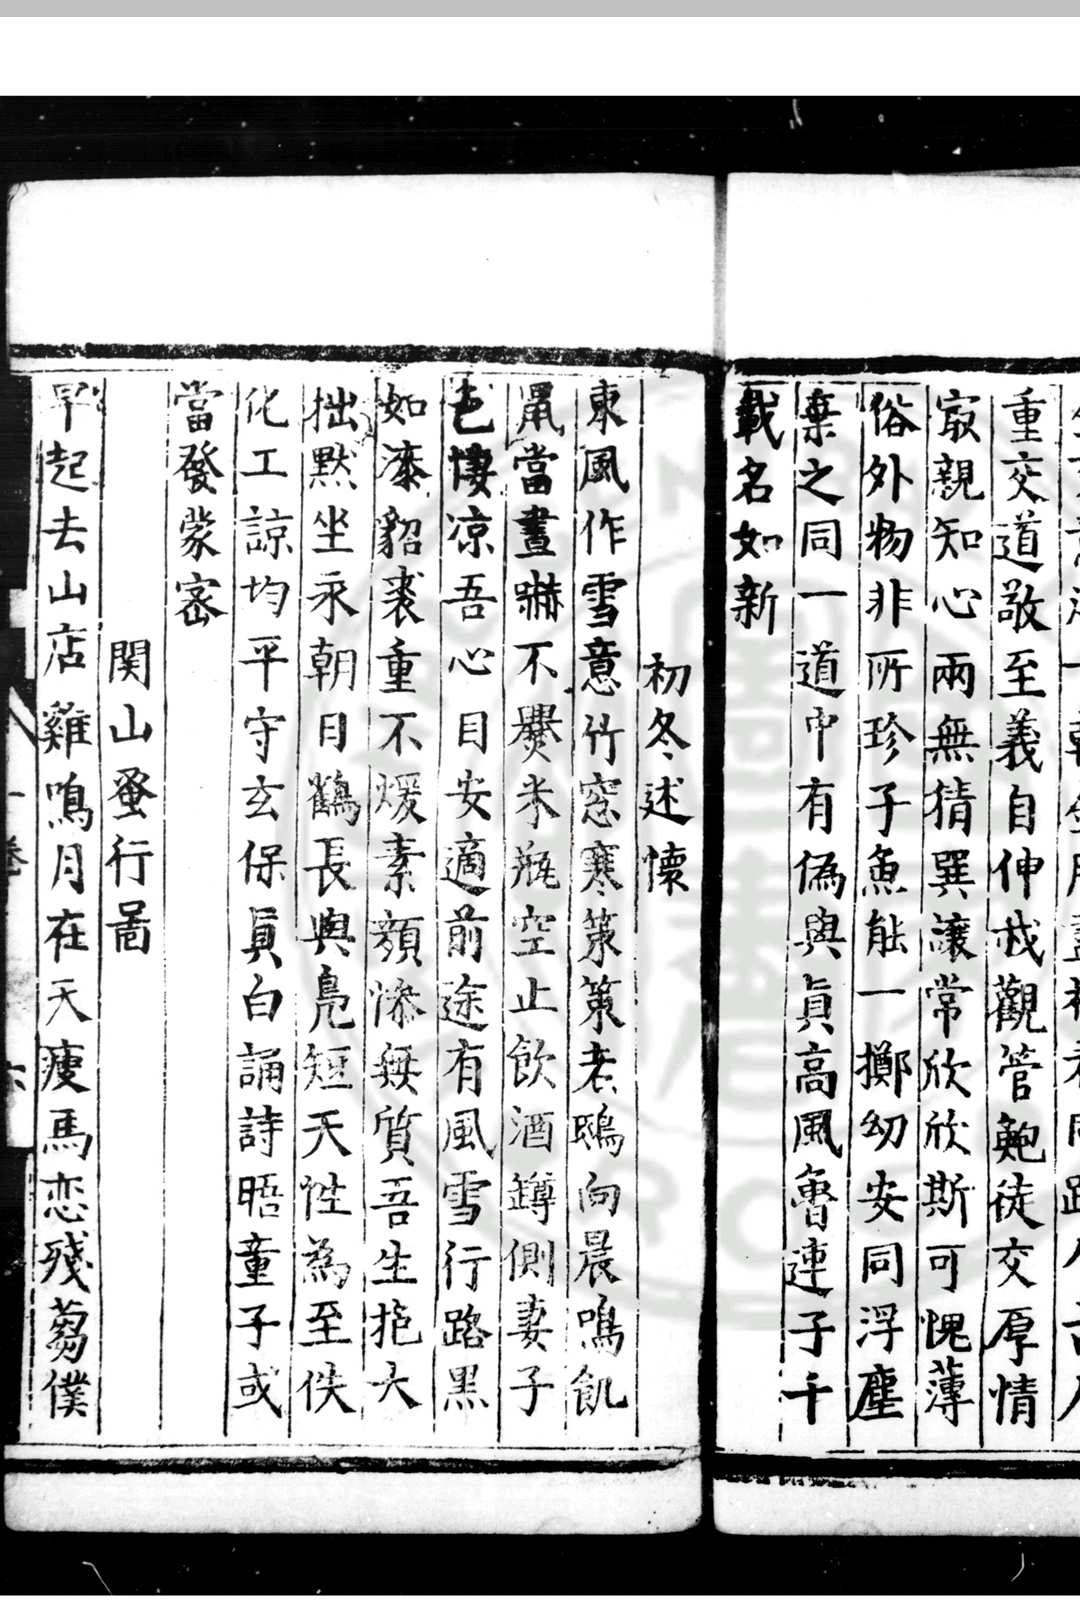 重交道敬至義自伸哉觀管鮑徒交厚情
寂親知心兩無猜異讓常欣欣斯可愧薄
俗外物非所珍子魚能一擲幼安同浮塵
棄之同一道中有偽與眞高風魯連子千
載名如新
初冬述懷
東風作雪意竹窓寒策策老鴟向晨鳴飢
鼠當晝嚇不爨米瓶空止飲酒罇側妻子
色悽凉吾心目安適前途有風雪行路黑
如漆貂裘重不煖素顔添無質吾生抱大
拙默坐永朝日鶴長與鳧短天性為至佚
化工諒均平守玄保眞白誦詩晤童子或
當發蒙密
関山蚤行啚
早起去山店雞鳴月在天瘦馬恋殘蒭僕